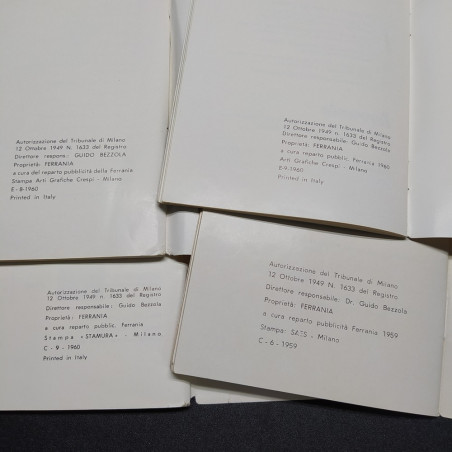 Autorizzazione del Tribunale di Milano
12 Ottobre 1949 N. 1633 del Registro
Direttore respons: GUIDO BEZZOLA
Proprietà: FERRANIA
a cura del reparto pubblicità della Ferrania
Stampa Arti Grafiche Crespi - Milano
E-8-1960
Printed in Italy
Autorizzazione del Tribunale di Milano
12 Ottobre 1949 n. 1633 del Registro
Direttore responsabile: Guido Bezzola
Proprietà: FERRANIA
a cura reparto pubblic, Ferrania 1960
Arti Grafiche Crespi - Milano
E-9-1960
Printed in Italy
Autorizzazione del Tribunale di Milano
12 Ottobre 1949 n. 1633 del Registro
Direttore responsabile: Guido Bezzola
Proprietà: FERRANIA
a cura reparto pubblic, Ferrania
Stampa «STAMURA» - Milano
C - 9 - 1960
Printed in Italy
Autorizzazione del Tribunale di Milano
12 Ottobre 1949 n. 1633 del Registro
Direttore responsabile: Dr. Guido Bezzola
Proprietà: FERRANIA
a cura reparto pubblicità Ferrania 1959
Stampa: - Milano
C - 6 - 1959